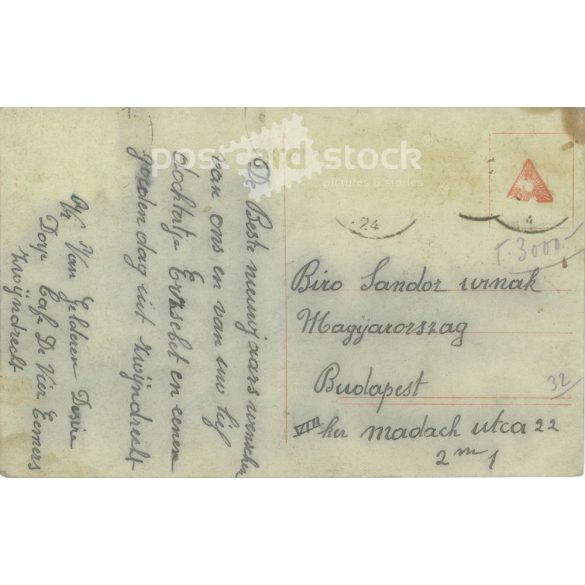 De Beste nieuwjaars wenschen
van ons en van uw lief
dochtertje Erzsebet en eenen
goeden dag uit Zwijndrecht
Van Gelderen Desire
Dorp Café De Vier Eemers
Zwijndrecht
24
4
T. 3000.
Biro Sandor urnak
Magyarorszag
Budapest
32
VIII ker madach utca 22
2 m 1
postcard stock
pictures & stories